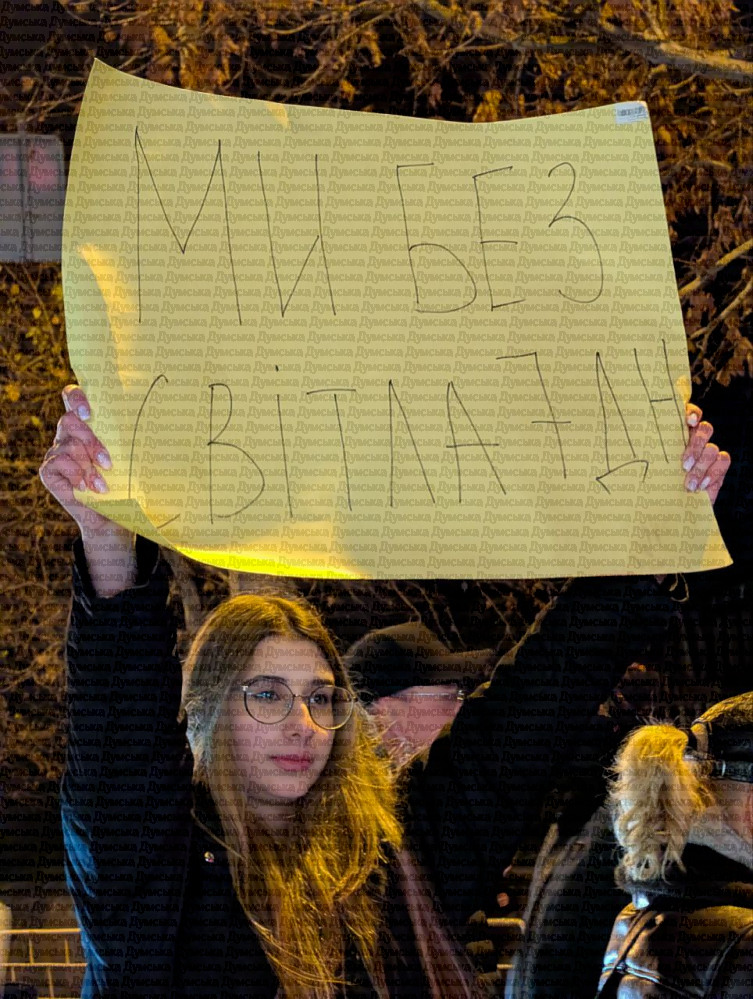 МИ БЕЗ
СВІТЛА 7 ДН
Думська